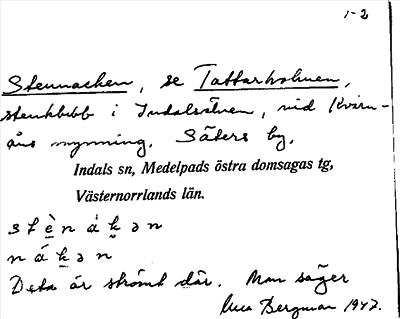 1-2
Stennacken, se Tattarholmen,
stenklubb i Indalsälven, vid Kvarn-
åns mynning. Säters by,
Indals sn, Medelpads östra domsagas tg,
Västernorrlands län.
stè̱nák̬ən
nák̬ən
Deta är strömt där. Man säger
Bergman 1947.